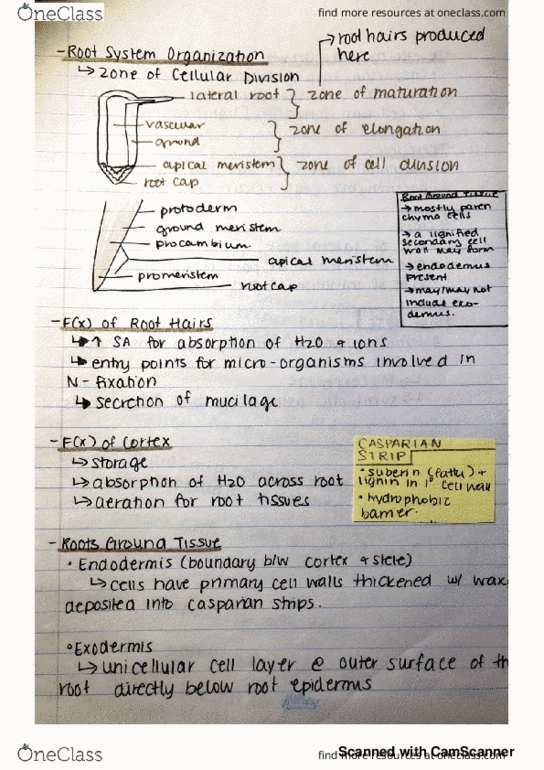 OneClass
find more resources at oneclass.com
- Root System Organization
↳ zone of Cellular Division
→ root hairs produced here
lateral root } zone of maturation
vascular
} zone of elongation
ground
apical meristem } zone of cell division
root cap
protoderm
ground meristem
procambium
apical meristem
promeristem
root cap
Root Ground Tissue
→ mostly paren
chyma cells
→ a lignified
secondary cell
wall may form
→ endodermis
present
→ may/may not
include exo-
dermis.
- F(x) of Root Hairs
↳ ↑ SA for absorption of H2O & ions
↳ entry points for micro-organisms involved in
N-fixation
↳ secretion of mucilage
- F(x) of Cortex
↳ storage
↳ absorption of H2O across root
↳ aeration for root tissues
CASPARIAN
STRIP
• suberin (fatty) +
lignin in 1° cell wall
• hydrophobic
barrier.
- Roots Ground Tissue
• Endodermis (boundary b/w cortex & stele)
↳ cells have primary cell walls thickened w/ wax
deposited into casparian strips.
• Exodermis
↳ unicellular cell layer @ outer surface of th
root directly below root epidermis
OneClass
find more resources at oneclass.com
Scanned with CamScanner